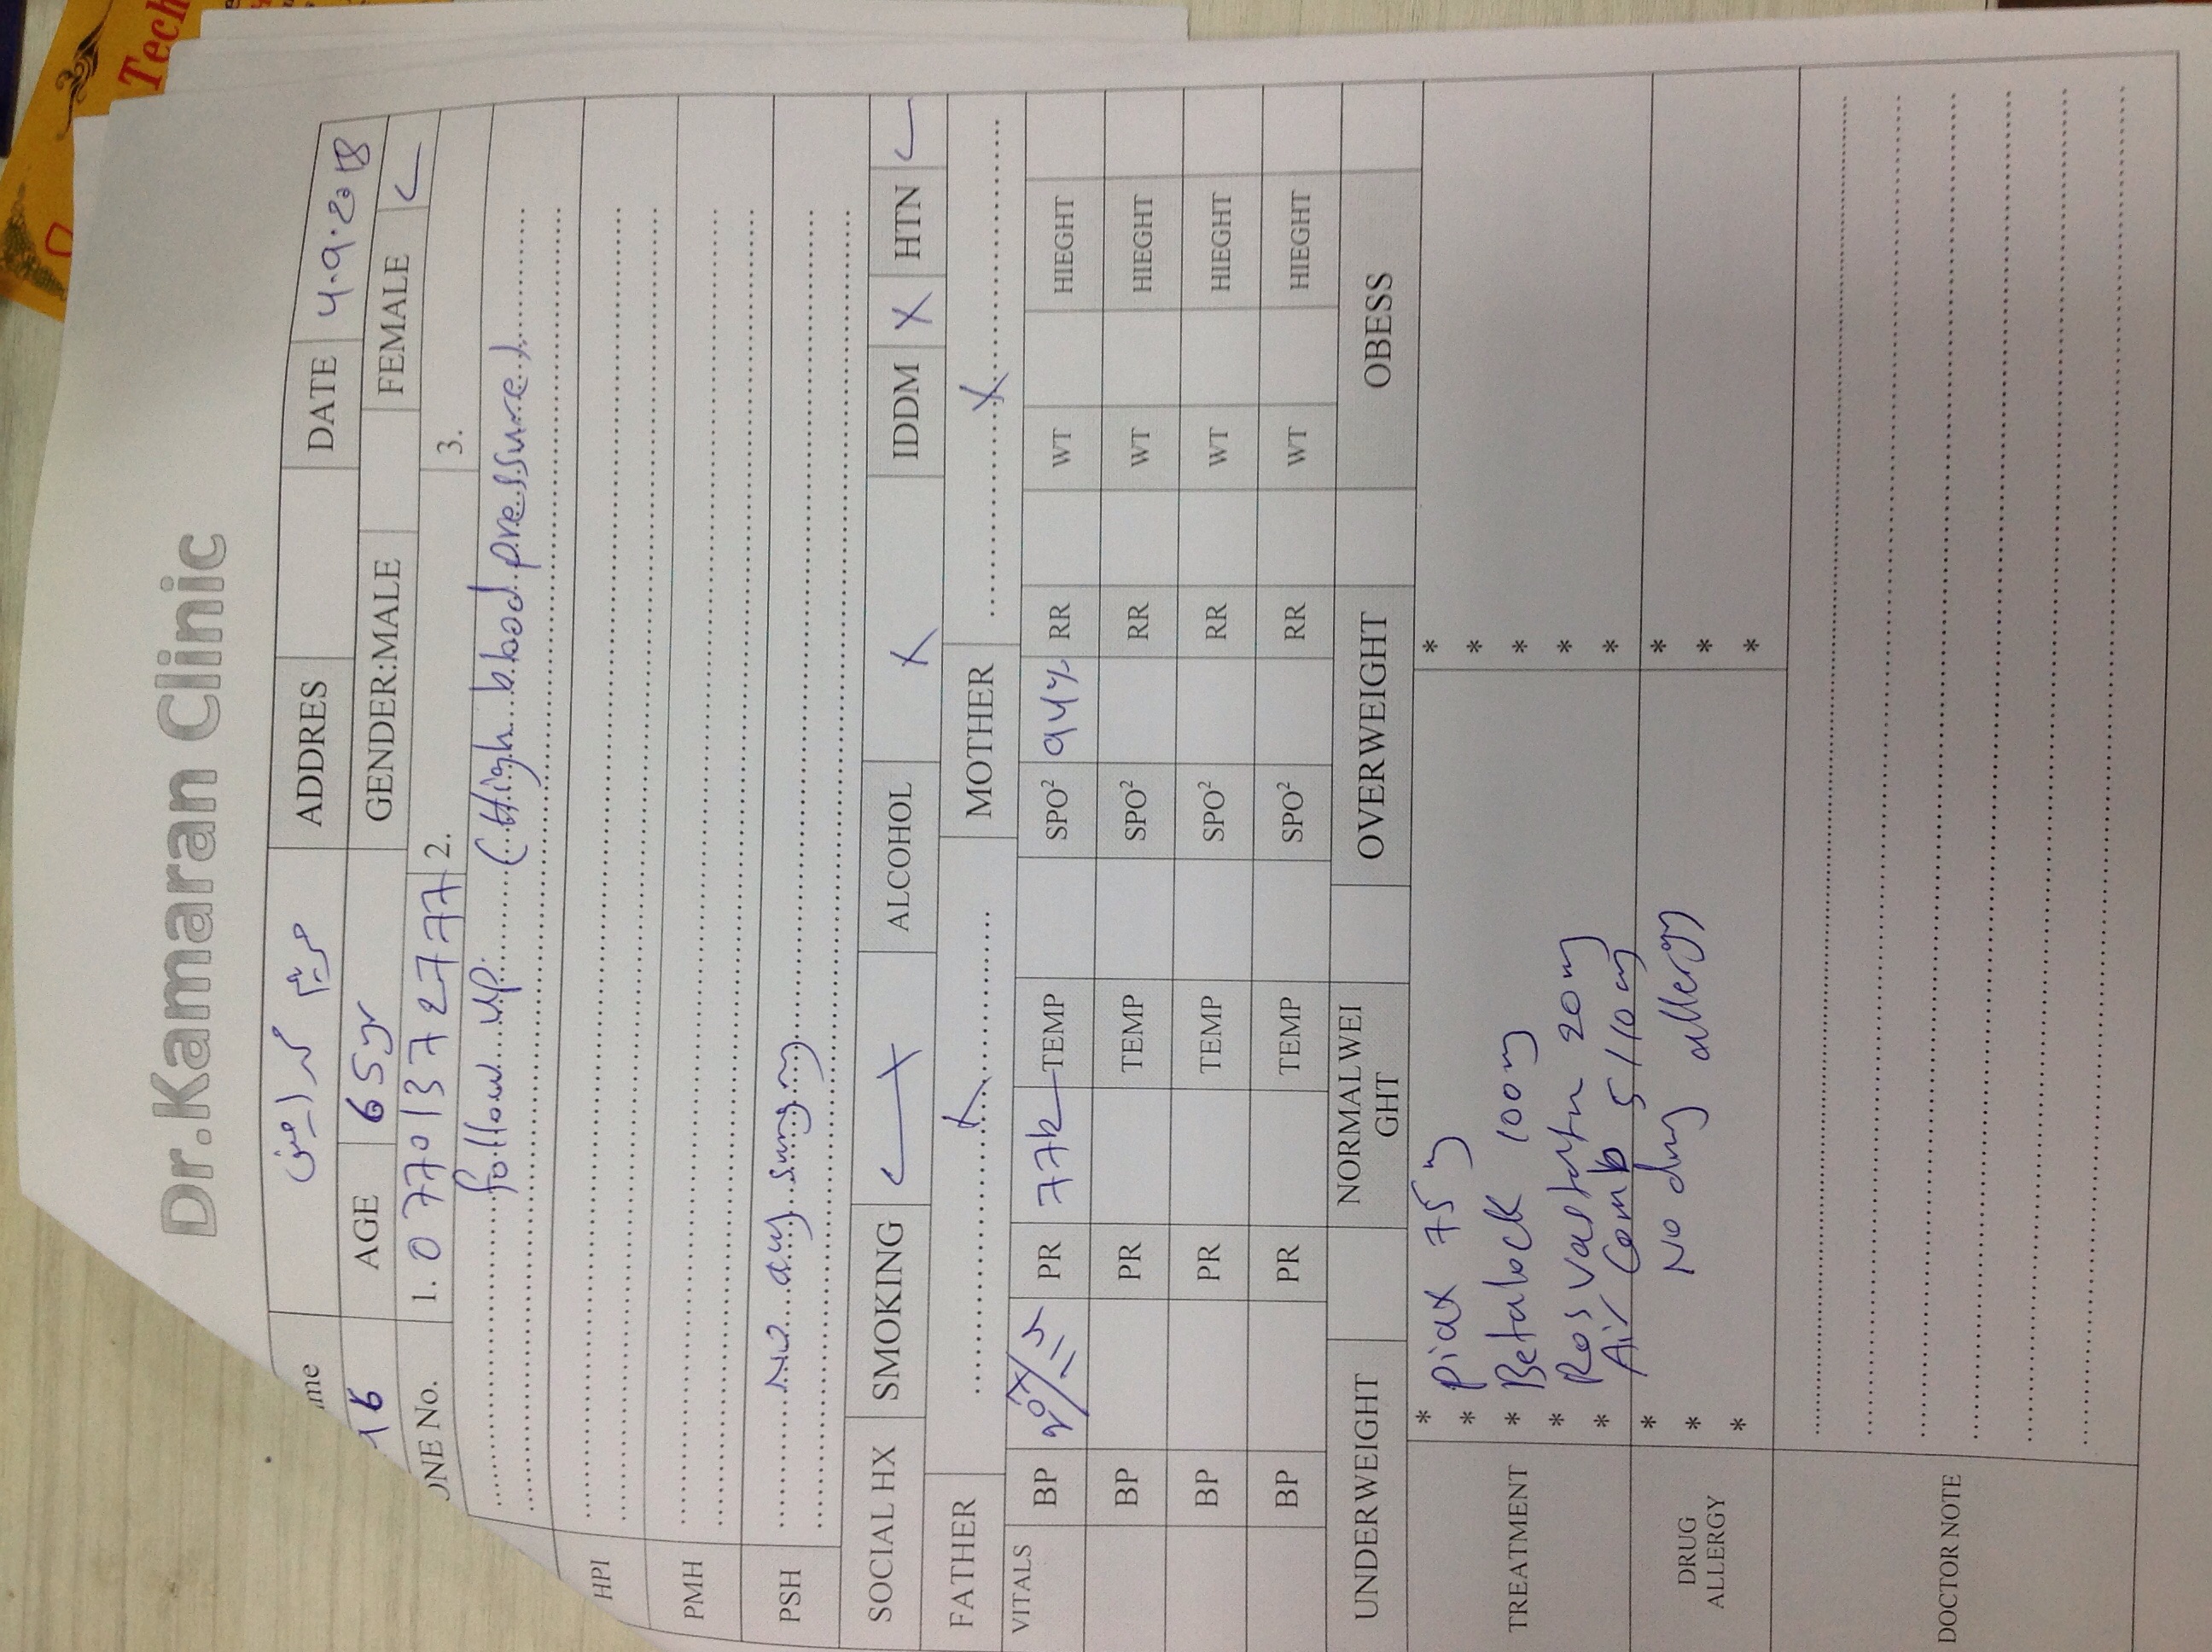 Tech
Dr.Kamaran Clinic
me مريم محمد امين ADDRES DATE 4.9.2018
16 AGE 65yr GENDER:MALE FEMALE ✓
ONE No. 1. 0770 137 2777 2. 3.
follow up (High blood pressure)
HPI
PMH
PSH No any surgery
SOCIAL HX SMOKING ALCOHOL X IDDM X HTN ✓
FATHER X MOTHER X
VITALS BP PR 77b TEMP SPO² 94% RR WT HIEGHT
BP PR TEMP SPO² RR WT HIEGHT
BP PR TEMP SPO² RR WT HIEGHT
BP PR TEMP SPO² RR WT HIEGHT
UNDERWEIGHT NORMALWEI
GHT OVERWEIGHT OBESS
TREATMENT
* Piax 75 * 
* 
* Betalock 100mg *
* Rosvastatn 20mg *
* Air Comb 5/10mg *
DRUG
ALLERGY
* No drug allergy *
* *
* *
DOCTOR NOTE